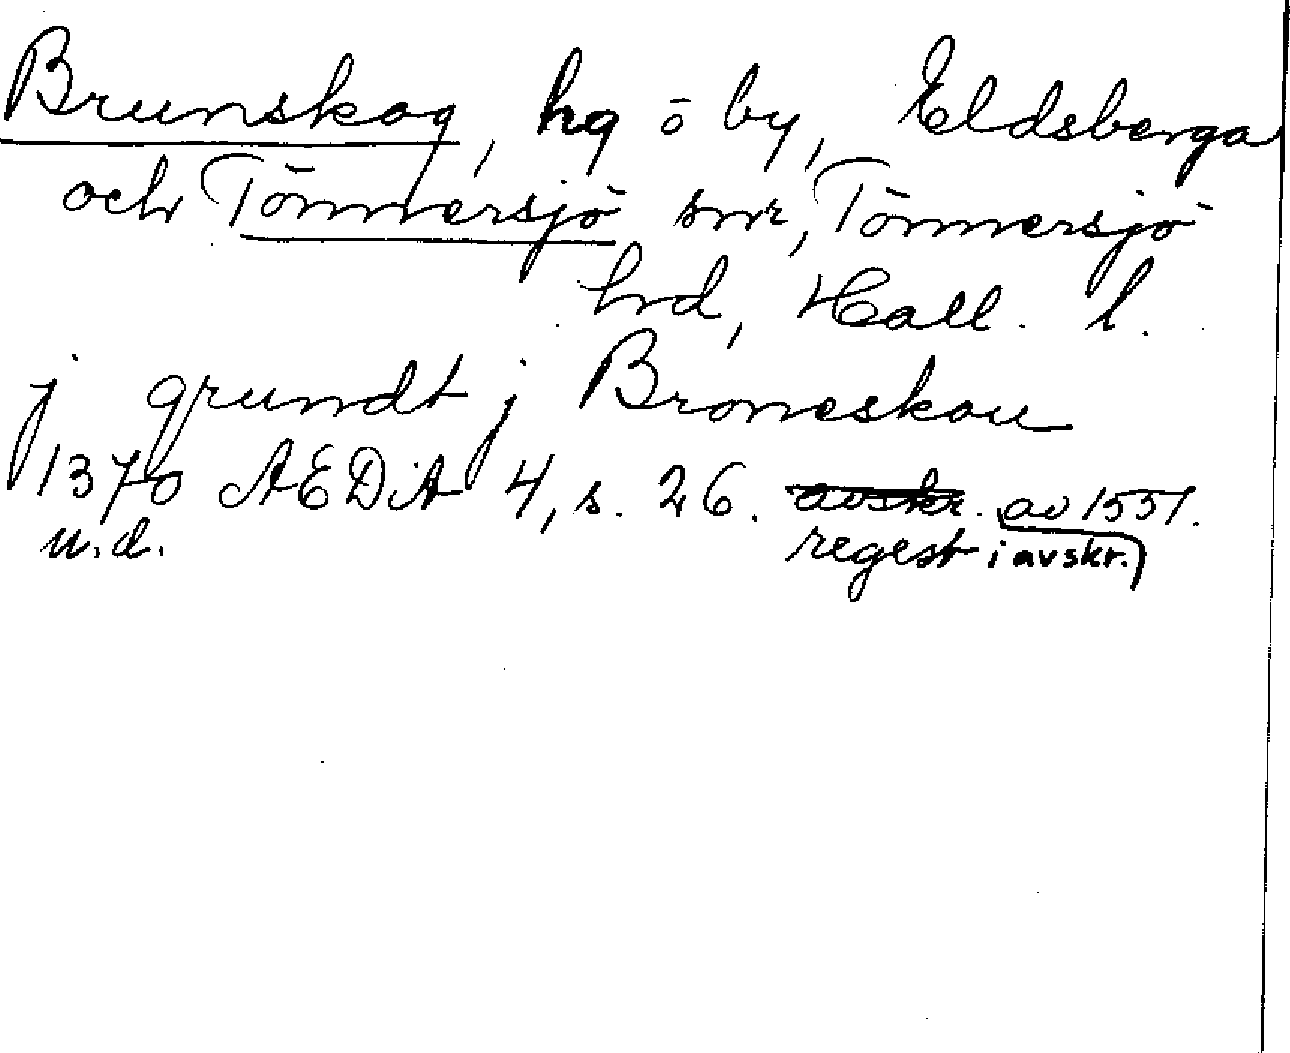 Brunskog, hg o by, Eldsberga
och Tönnersjö snr, Tönnersjö
hrd, Hall. l.
j grundt j Broneskou
1370 AEDiA 4, s. 26. avskr. av 1551.
u.d. regest i avskr.